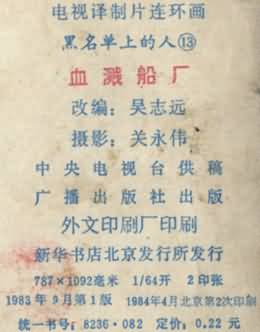 电视译制片连环画
黑名单上的人⑬
血溅船厂
改编：吴志远
摄影：关永伟
中央电视台供稿
广播出版社出版
外文印刷厂印刷
新华书店北京发行所发行
787×1092毫米 1/64开 2印张
1983年9月第1版 1984年4月北京第2次印刷
统一书号：8236·082 定价：0.22元